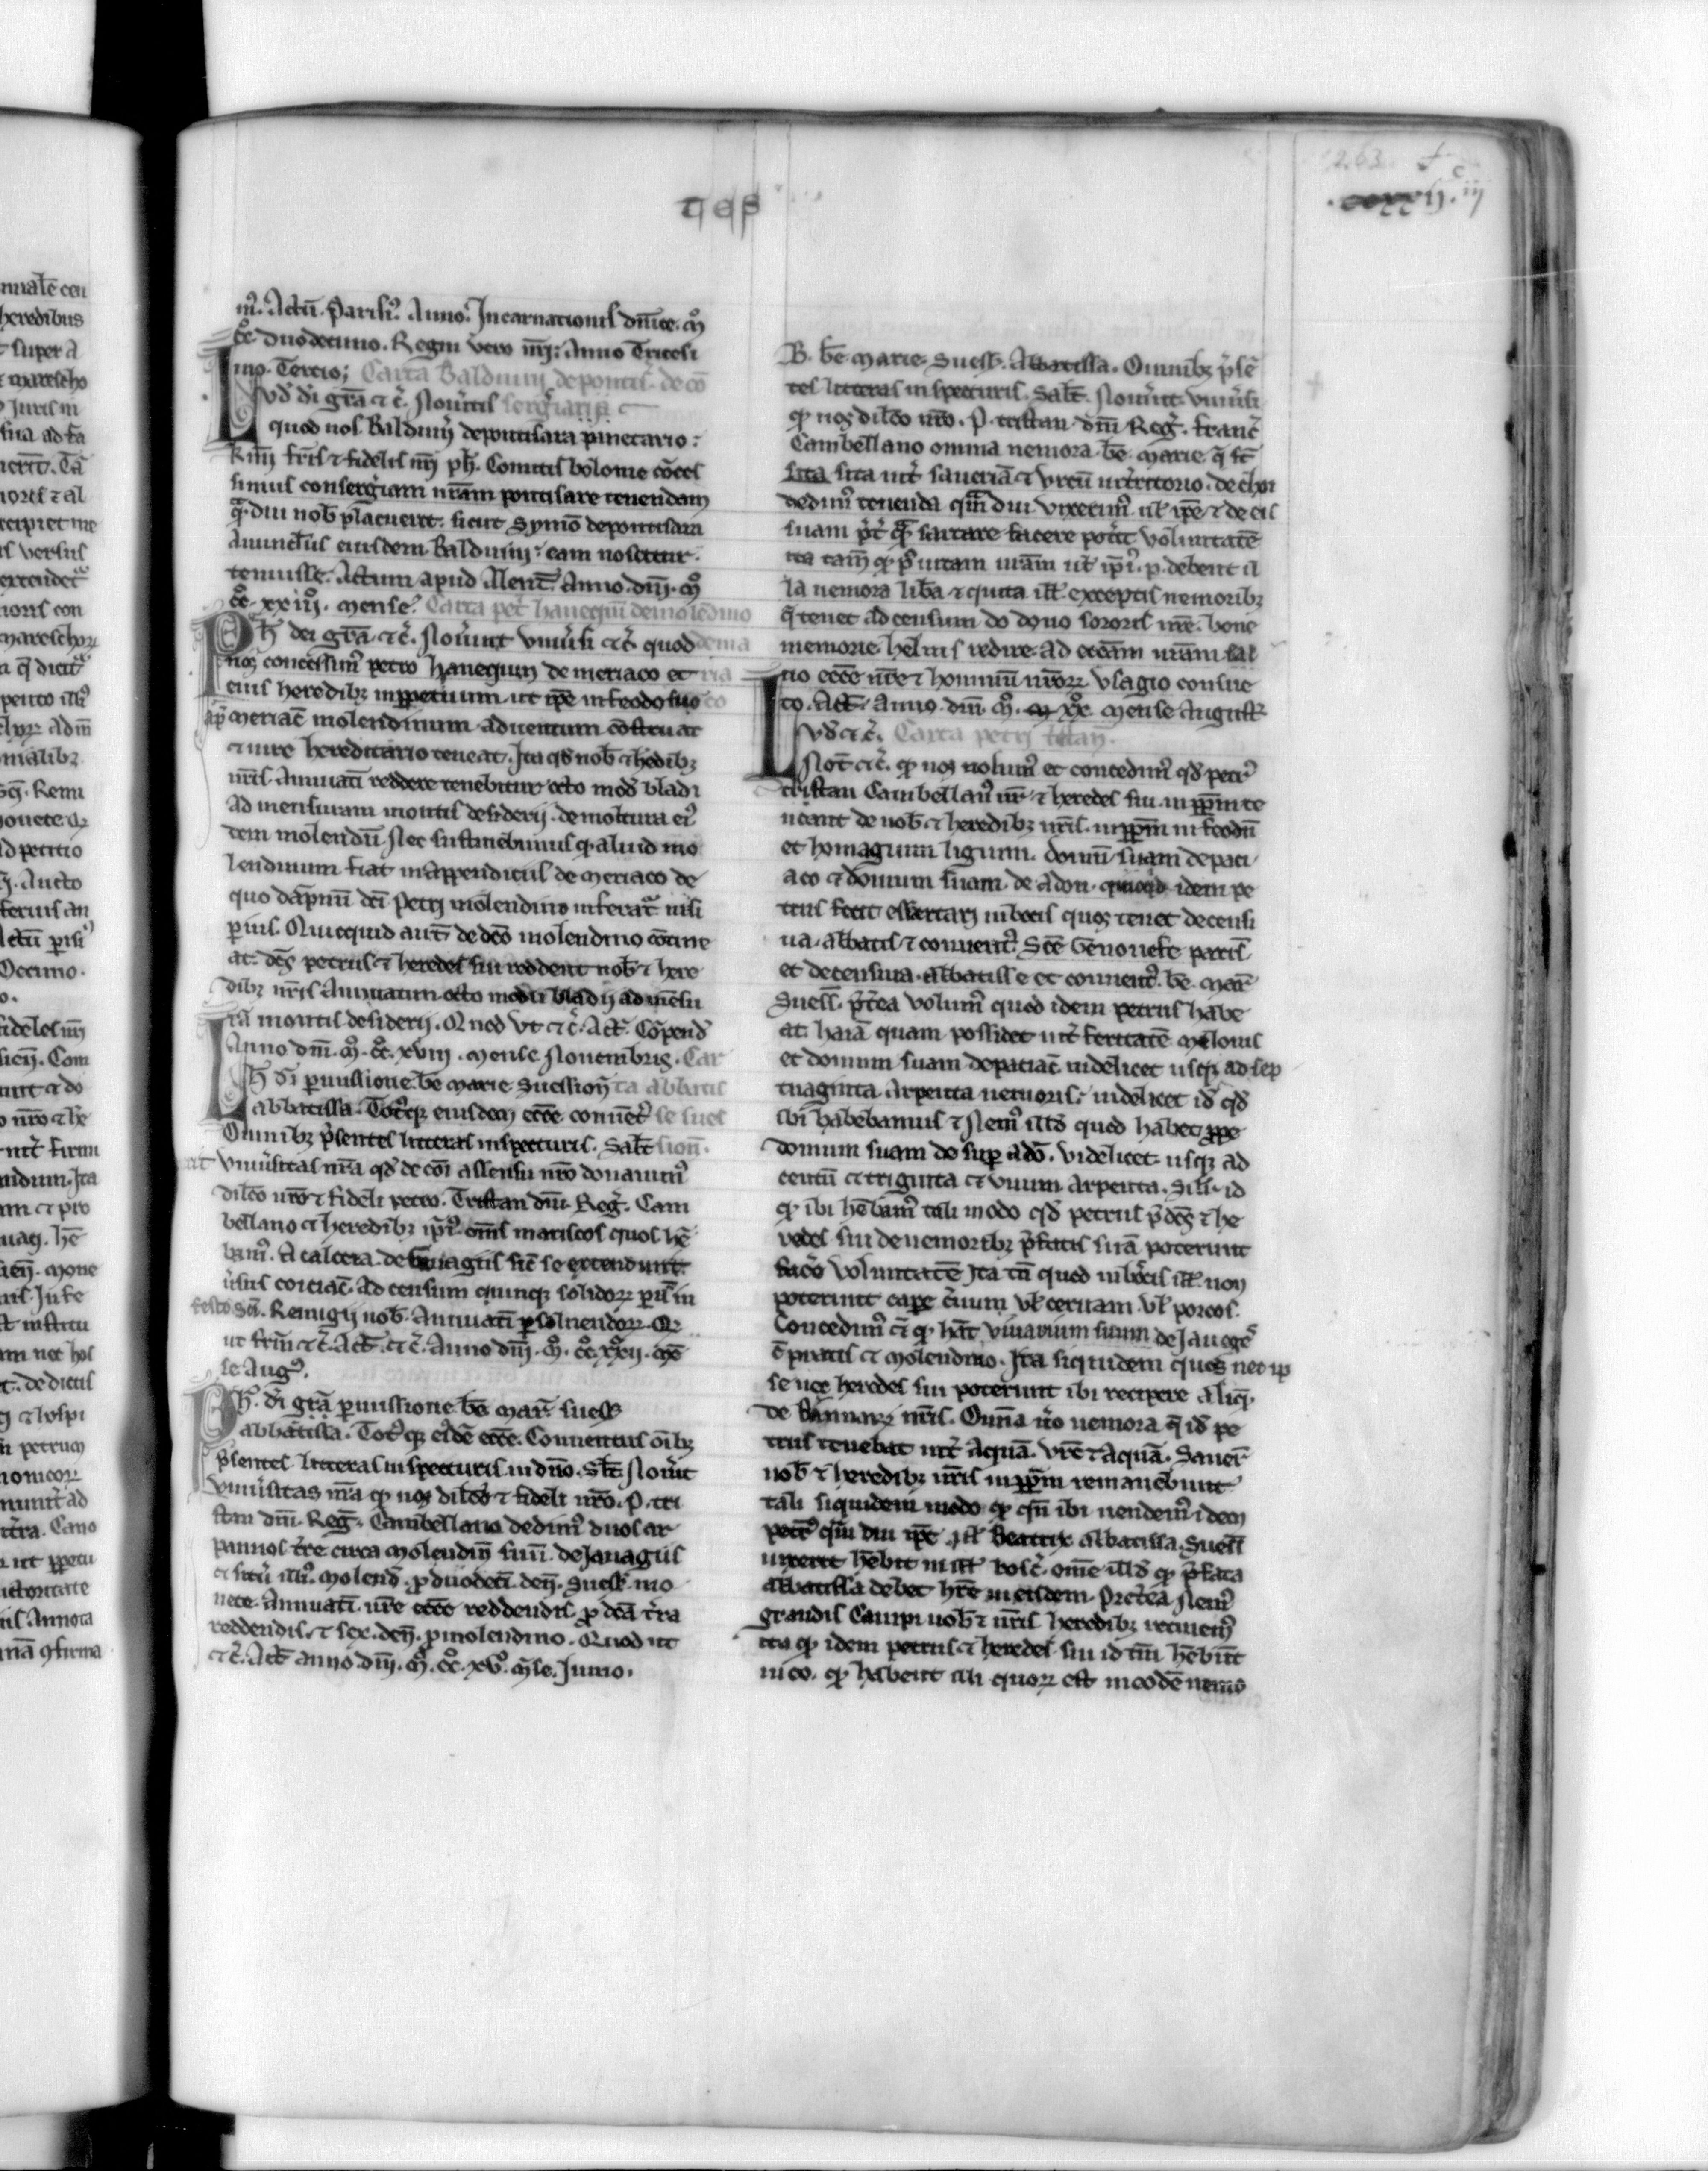 m᷒. Actū. Parisi᷒. Anno. Incarnationis dn̄ice. m̊
c̊c̊ duodecimo. Regni vero nr̄i: Anno Tricesi
mo. Tercio; Carta Balduini de pontis̄. de cō
lvd' di gr̄a ⁊ c̄. Nou'itis sergiaria
quod nos Balduin̄ de pontisara panetario:
Kmi fr̄is ⁊ fidelis nr̄i ph̄. Comitis bolonie cōces
simus consergiam nr̄am pontisare tenendam
q̄. diu nob̄ placuerit. sicut Symō de pontisara
Auunclus eiusdem Balduini: eam noscitur.
tenuisse. Actum apud Anno. dn̄i. m̊
c̊c̊. xxiij̊. mense. Carta pet' hanequin de molēdino
Ph̄. dei gr̄a. ⁊c̄. Nou'int vniu'si ⁊c̄ quod de ma
nos concessim᷒ petro hanequin de meriaco et ria
eius heredibꝫ inppetuum ut ip̄e in feodo suo co
ap' meriac̄ molendinum ad uentum cōstruat
⁊ iure hereditario teneat. Ita qd' nob̄ ⁊ hedibꝫ
nr̄is. Annuatī reddere tenebitur octo mod' bladi
ad mensuram montis desiderij. de molitura ei᷒
dem molendin̄. Nec sustinebimus q. aliud mo
lendinum fiat in appendiciis de meriaco de
quo dāpnū dc̄i Petri molendino inferat' nisi
p nis. Quicquid aut̄ de dc̄o molendino cōtine
at. dc̄s petrus ⁊ heredes sui reddent nob̄ ⁊ here
dibꝫ nr̄is Annuatim octo modii bladij ad mēsu
rā montis desiderij. Quod vt ⁊ c̄. Act̄. Cōpend'
Anno dn̄i. m̊. c̊c̊. xviij. mense Nouembris. Car
h̄ di pmissione. be marie suession̄ ta abbatis
abbatissa. Tot᷒qꝫ eiusdem ecc̄e conuēt᷒ se sues
Omnibꝫ p̄sentes litteras inspecturis. Salt̄ sion̄.
vniu'sitas nr̄a qd' de cōi assensu nr̄o donauim᷒
dilc̄o nr̄o ⁊ fideli petro. Tristan dn̄i Reg'. Cam
bellano ⁊ heredibꝫ ip̄i᷒. om̄s mariscos quos hē
bam᷒. A calceia. de iuagiis sic̄ se extendunt.
u'sus coiciac̄ ad censum quinqꝫ solidoꝝ pis̄ in
festo sc̄i. Remigij nob̄. Annuatī psoluendoꝝ. Qd'
ut firm̄ ⁊ c̄. Act̄. ⁊ c̄. Anno dn̄i. m̊. c̊c̊. xx̊ij. mē
se Aug᷒.
Ph̄. di gr̄a pmissione. be mar̄. suess̄
abbatissa. Tot᷒qꝫ ei᷒dē ecc̄e. Conuentus oībꝫ
p̄sentes litteras inspecturis in dn̄o. Sl̄t. Nou'it
vniu'sitas nr̄a qp nos dilc̄o ⁊ fideli nr̄o. P. tri
stan dn̄i. Reḡ. Cambellano dedim᷒ duos ar
pannos tr̄e circa molendin̄ suū. de Jauagiis
⁊ sitū ill᷒. molend̄. p duodeci. den̄. suess̄. mo
nete. Annuatī. nr̄e ecc̄e reddendis p dc̄a tr̄ra
reddendis. ⁊ sex. den̄. p molendino. Quod ut
⁊ c̄. Act̄ anno. dn̄i. m̊. c̊c̊. xv̊. m̄se. Junio.
B. be marie. Suess̄. Abbatissa. Omnibꝫ p̄sē
tes litteras inspecturis. Salt̄. Nou'int. vniu'si
qp nos dilc̄o nr̄o. P. tristan dn̄i Reg'. franc̄
Cambellano omnia nemora. be. marie q̄ st̄
sita sita int' saueriā ⁊ vrcū in t'ritorio. de choi
dedim᷒ tenenda qm̄ diu vixerim᷒ ul̄ ip̄e ⁊ de eis
suam p̄t' sartare facere pot'it voluntatē
ita tam̄ qp p⁹ uitam nr̄am ut ip̄i᷒. p. debent il
la nemora lib̄a ⁊ quita ill̄ exceptis nemoribꝫ
q̄ tenet ad censum do dono sororis nr̄e. bone
memorie heluis redire. ad ecc̄am nr̄am sal
uo ecc̄e nr̄e ⁊ hominū nr̄oꝝ vsagio consue
to. Act̄. Anno. dn̄i. m̊. cc xx̊. mense Augusti
lvd' ⁊ c̄. Carta petri tristan.
Not̄ ⁊ c̄. qp nos uolum᷒ et concedim᷒ qd' petr᷒
tristan Cambellan᷒ nr̄ ⁊ heredes sui. inppm te
neant de nob̄ ⁊ heredibꝫ nr̄is. inppm in feodū
et homagium ligium. domū suam de paci
aco ⁊ domum suam. de adon. quicqd' idem pe
trus fecit essartari in bocis quos tenet de censi
ua. abbatis ⁊ conuent᷒. Sc̄e Genouefe paris̄
et de censiua. abbatisse et conuent᷒. be. mar̄
Suess̄. p̄t'ea volum᷒ quod idem petrus habe
at. haiā quam possidet int' feritatē Milonis
et domum suam de paciac̄ uidelicet usqꝫ ad sep
tuaginta arpenta nemoris: uidelicet id' qd'
ibi habebamus ⁊ Nem᷒ illd' quod habet ppe
domum suam de sup adō. videlicet usqꝫ ad
centū ⁊ triginta ⁊ vnum arpenta. Silī. id
qp ibi hēbam᷒ tali modo qd' petrus p̄dc̄s ⁊ he
redes sui de nemoribꝫ p̄fatis suā poterunt
fac'e voluntatē Ita tn̄ quod in bocis ill̄. non
poterunt cape c'uum ul̄ ceruam. ul̄ porcos.
Concedim᷒ ⁊ qp hāt viuarium suum de Jaucge᷒
c̄ pratis ⁊ molendino. Ita siquidem quos nec ip
se nec heredes sui poterunt ibi recipere aliq.
de nr̄is. Omīa u'o nemora q̄ id' pe
trus tenebat int' aquā. vrc̄ ⁊ aquā. Sauer̄
nob̄ ⁊ heredibꝫ nr̄is inppm remanebunt
tali siquidem modo qp qn̄ ibi uendem᷒ idem
petr᷒ qm̄ diu ip̄e. ul̄ Beatrix abbatissa. Suess̄
uixerit hēbit in ill̄ bosc᷒. om̄e illd' qp p̄fata
abbatissa debet hr̄e in eisdem. Pret'ea Nem᷒
grandis Campi nob̄ ⁊ nr̄is heredibꝫ retinem᷒
ita qp idem petrus ⁊ heredes sui id tm̄ hēbūt
in eo. qp habent alii quoꝝ est in eodē nemo